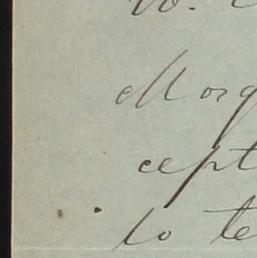 W.
Morg
cept
to te